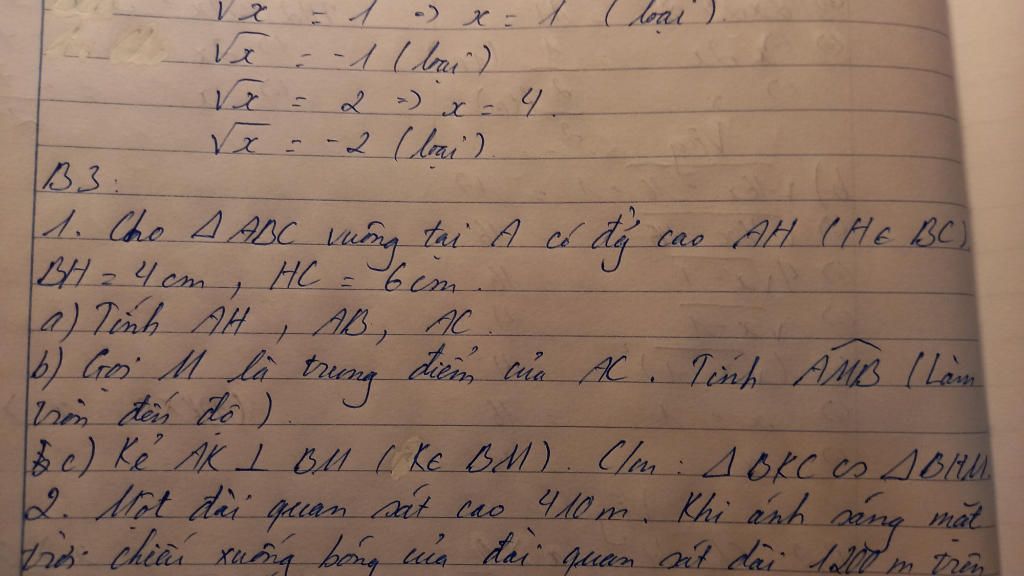 √x = 1 => x = 1 (loại).
√x = -1 (loại)
√x = 2 => x = 4.
√x = -2 (loại).
B3:
1. Cho Δ ABC vuông tại A có đg̉ cao AH (H∈ BC)
BH = 4 cm, HC = 6 cm.
a) Tính AH, AB, AC.
b) Gọi M là trung điểm của AC. Tính AMB̂ (Làm
tròn đến độ).
c) Kẻ AK ⊥ BM (K∈ BM). C/m: Δ BKC ∽ Δ BHM
2. Một đài quan sát cao 410 m. Khi ánh sáng mặt
trời chiếu xuống bóng của đài quan sát dài 1200 m trên